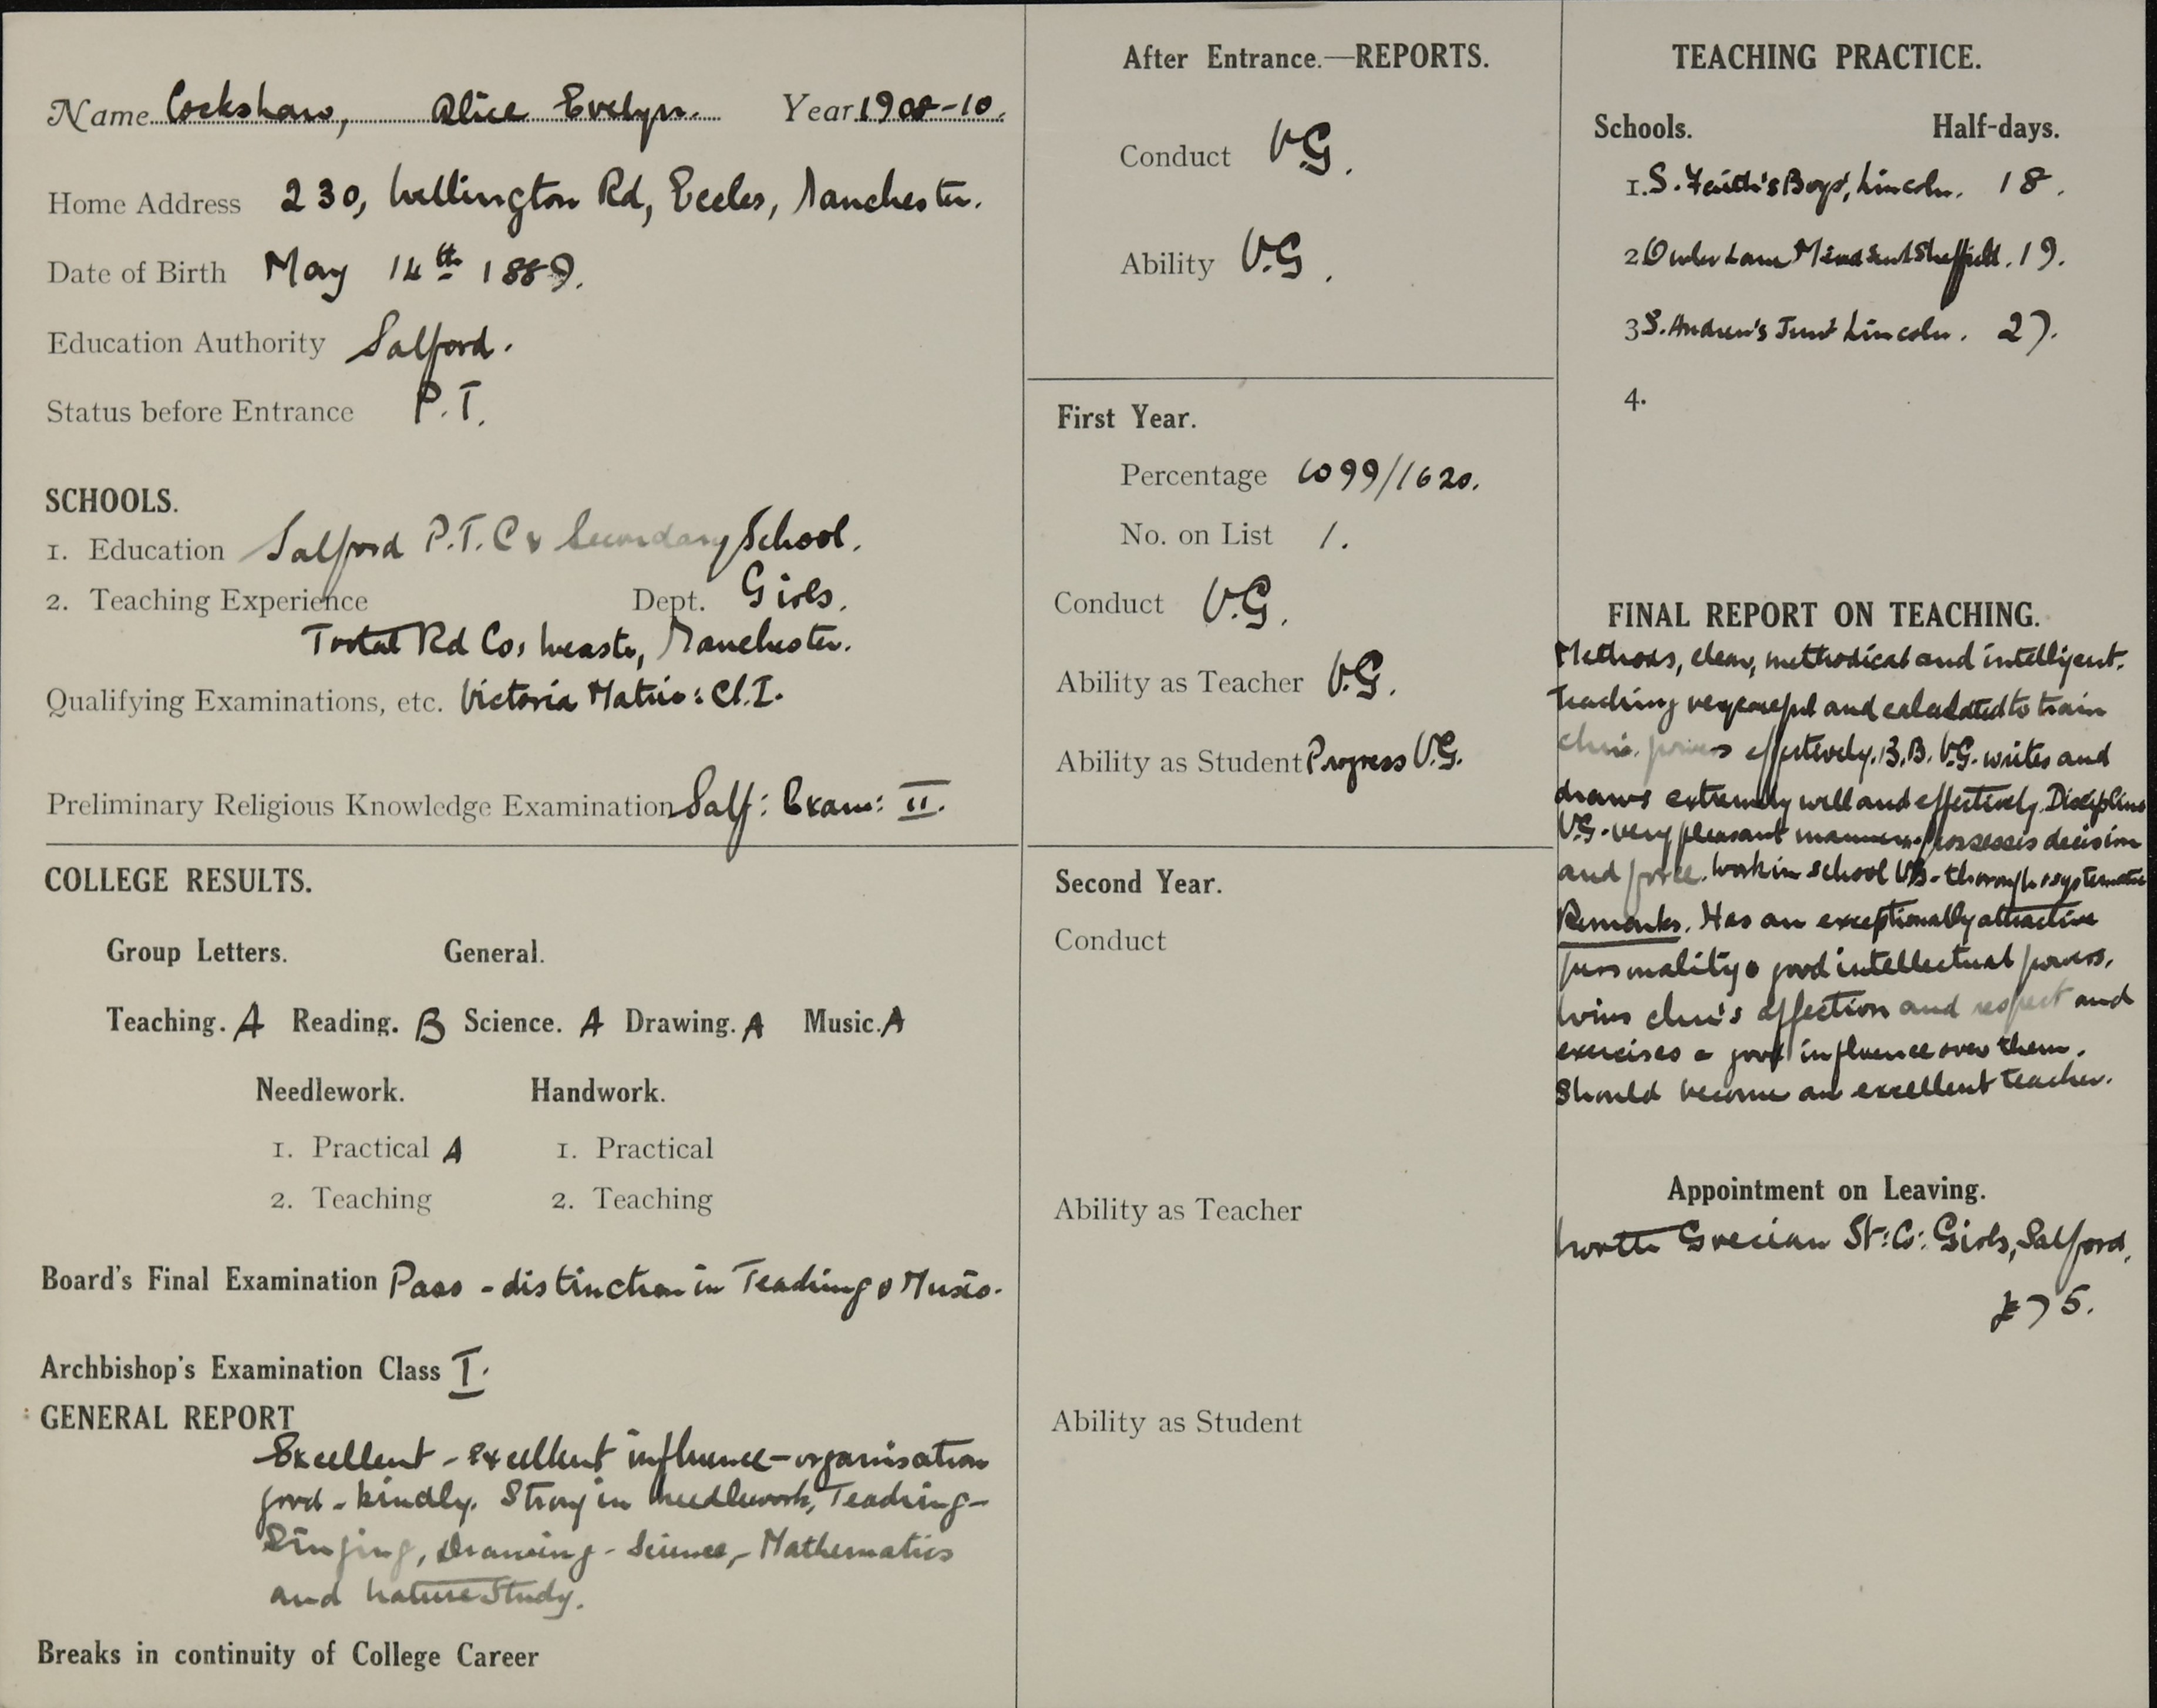 Name Cockshaw, Alice Evelyn. Year 1908-10.
Home Address 230, Wellington Rd, Eccles, Manchester.
Date of Birth May 14th 1889.
Education Authority Salford.
Status before Entrance P.T.
SCHOOLS.
1. Education Salford P.T.C & Secondary School.
2. Teaching Experience Dept. Girls.
Tootal Rd Co: Weaste, Manchester.
Qualifying Examinations, etc. Victoria Matric: Cl. I.
Preliminary Religious Knowledge Examination Salf: Exam: II.
COLLEGE RESULTS.
Group Letters. General.
Teaching. A Reading. B Science. A Drawing. A Music. A
Needlework. Handwork.
1. Practical A 1. Practical
2. Teaching 2. Teaching
Board's Final Examination Pass - distinction in Teaching & Music.
Archbishop's Examination Class I.
GENERAL REPORT
Excellent - excellent influence - organisation
good - kindly. Strong in Needlework, Teaching -
Singing, Drawing - Science, - Mathematics
and Nature Study.
Breaks in continuity of College Career
After Entrance.—REPORTS.
Conduct V.G.
Ability V.G.
First Year.
Percentage 1099/1620.
No. on List 1.
Conduct V.G.
Ability as Teacher V.G.
Ability as Student Progress V.G.
Second Year.
Conduct
Ability as Teacher
Ability as Student
TEACHING PRACTICE.
Schools. Half-days.
1. S. Faith's Boys', Lincoln. 18.
2 Owler Lane Sheffield. 19.
3 S. Andrew's Junr Lincoln. 27.
4.
FINAL REPORT ON TEACHING.
Methods, clear, methodical and intelligent.
Teaching very careful and calculated to train
chn's. powers effectively. B.B. V.G. writes and
draws extremely well and effectively. Discipline
V.G. - very pleasant manner. Possesses decision
and force. Work in school V.G. - thorough & systematic
Remarks. Has an exceptionally attractive
personality & good intellectual powers.
Wins chn's affection and respect and
exercises a good influence over them.
Should become an excellent teacher.
Appointment on Leaving.
North Grecian St: C: Girls, Salford.
£75.